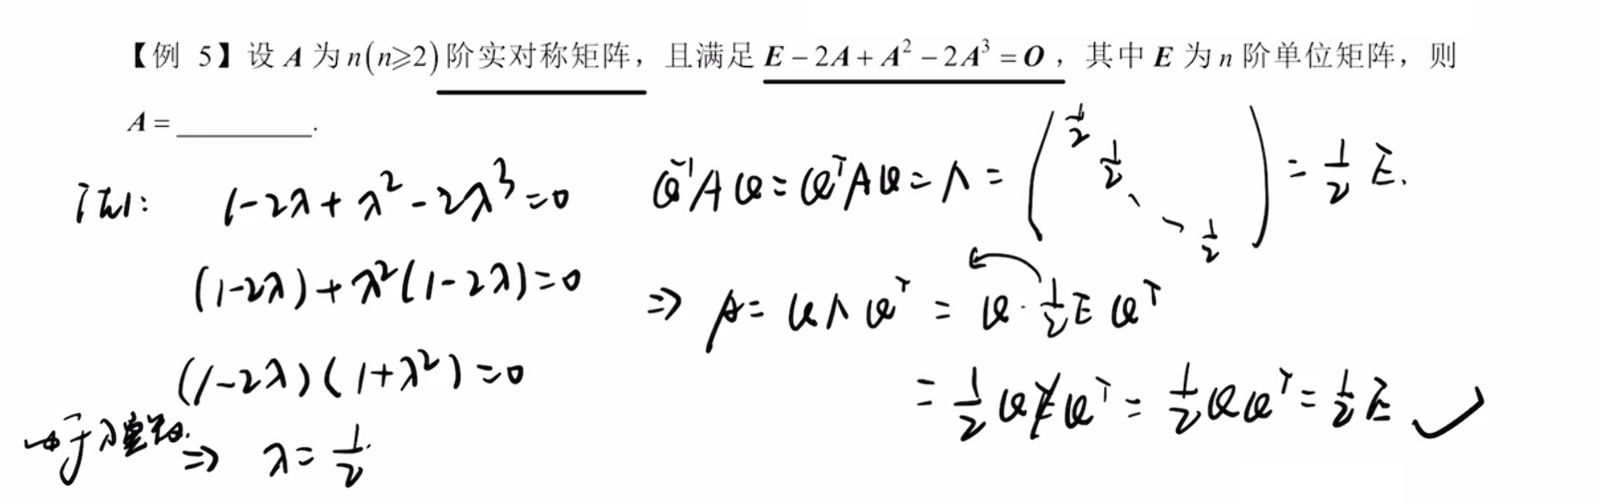 【例 5】设 A 为 n(n≥2) 阶实对称矩阵，且满足 E − 2A + A² − 2A³ = O，其中 E 为 n 阶单位矩阵，则
A = ________.
法1: 1-2λ+λ²-2λ³=0
(1-2λ)+λ²(1-2λ)=0
(1-2λ)(1+λ²)=0
由于λ实数. ⇒ λ=1/2.
Q⁻¹AQ=QᵀAQ=Λ=(1/2 1/2 ⋱ 1/2)=1/2 E.
⇒ A=QΛQᵀ=Q·1/2EQᵀ
=1/2QEQᵀ=1/2QQᵀ=1/2E ✓